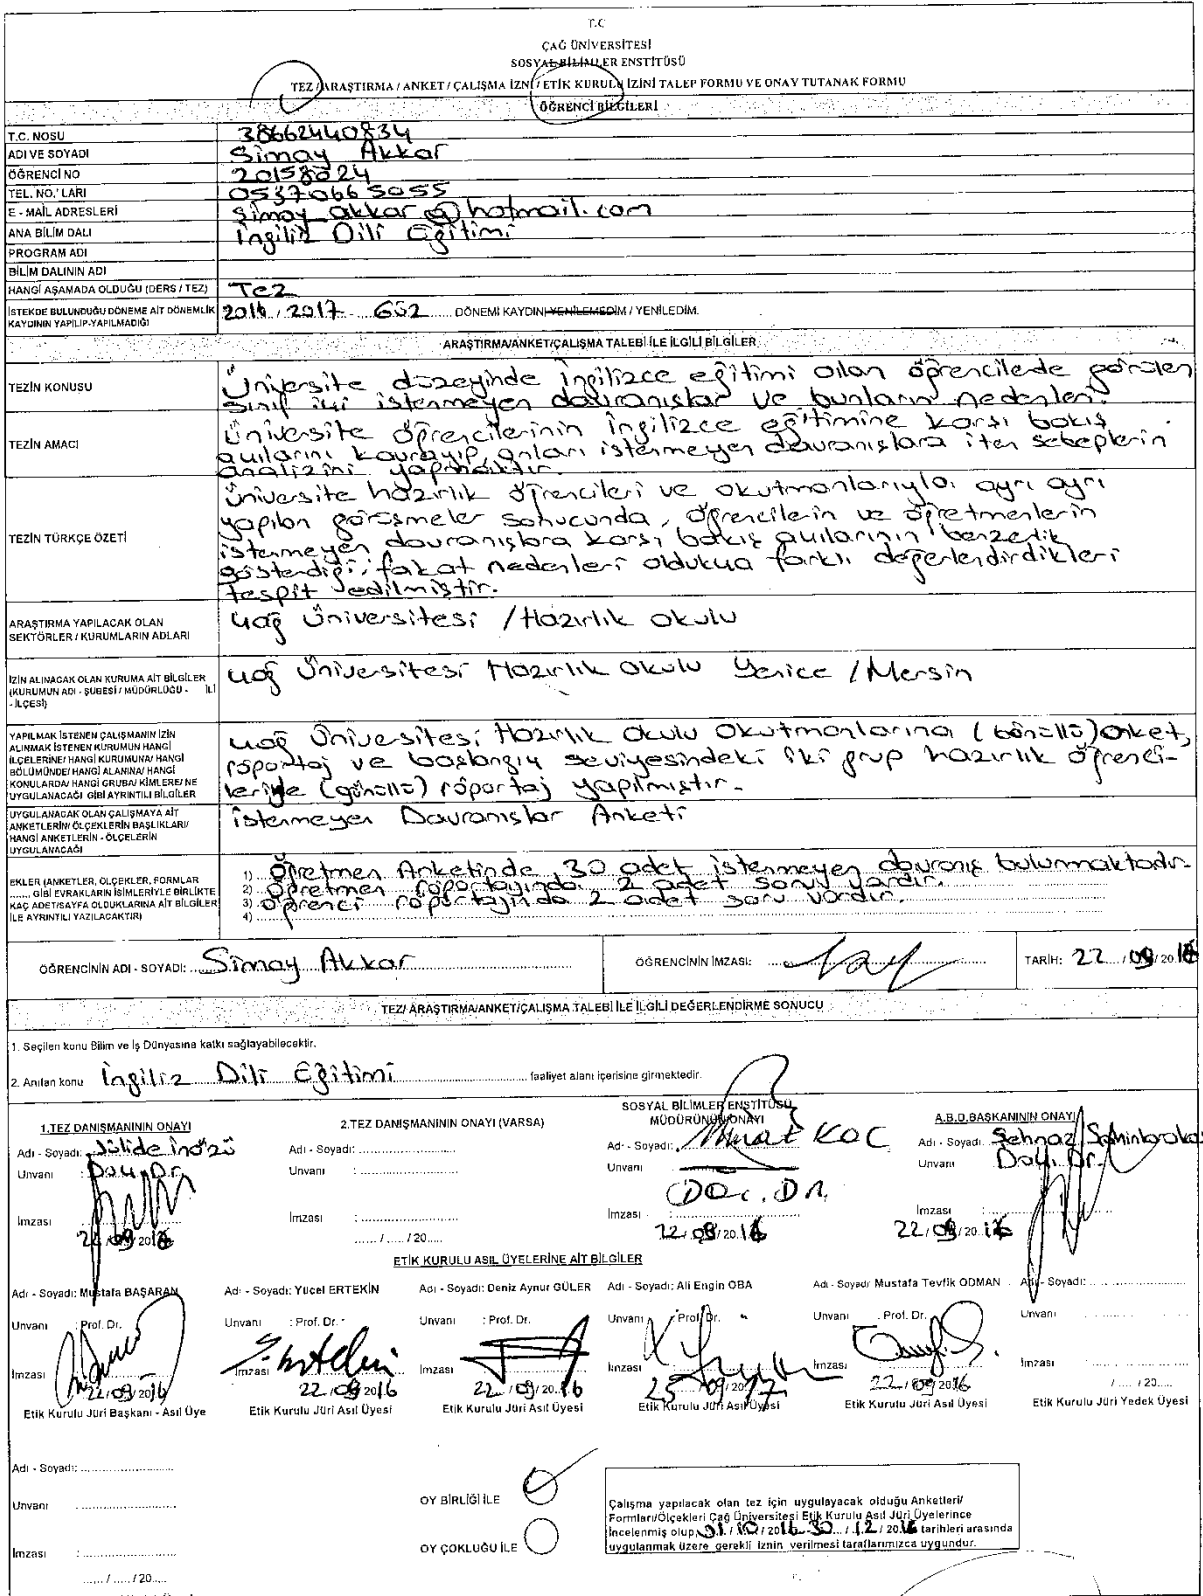 T.C
ÇAĞ ÜNİVERSİTESİ
SOSYAL BİLİMLER ENSTİTÜSÜ
TEZ / ARAŞTIRMA / ANKET / ÇALIŞMA İZNİ / ETİK KURULU İZİNİ TALEP FORMU VE ONAY TUTANAK FORMU
ÖĞRENCİ BİLGİLERİ
T.C. NOSU 38662440834
ADI VE SOYADI Simay Akkar
ÖĞRENCİ NO 20158024
TEL. NO.' LARI 05370665055
E - MAİL ADRESLERİ simay_akkar@hotmail.com
ANA BİLİM DALI İngiliz Dili Eğitimi
PROGRAM ADI
BİLİM DALININ ADI
HANGİ AŞAMADA OLDUĞU (DERS / TEZ) Tez
İSTEKDE BULUNDUĞU DÖNEME AİT DÖNEMLİK KAYDININ YAPILIP-YAPILMADIĞI 2016 / 2017 - GÜZ DÖNEMİ KAYDINI YENİLEMEDİM / YENİLEDİM.
ARAŞTIRMA/ANKET/ÇALIŞMA TALEBİ İLE İLGİLİ BİLGİLER
TEZİN KONUSU
Üniversite düzeyinde İngilizce eğitimi alan öğrencilerde görülen
sınıf içi istenmeyen davranışlar ve bunların nedenleri.
TEZİN AMACI
Üniversite öğrencilerinin İngilizce eğitimine karşı bakış
açılarını kavrayıp, onları istenmeyen davranışlara iten sebeplerin
analizini yapmaktır.
TEZİN TÜRKÇE ÖZETİ
Üniversite hazırlık öğrencileri ve okutmanlarıyla, ayrı ayrı
yapılan görüşmeler sonucunda, öğrencilerin ve öğretmenlerin
istenmeyen davranışlara karşı bakış açılarının benzerlik
gösterdiği, fakat nedenleri oldukça farklı değerlendirdikleri
tespit edilmiştir.
ARAŞTIRMA YAPILACAK OLAN
SEKTÖRLER / KURUMLARIN ADLARI
Çağ Üniversitesi / Hazırlık Okulu
İZİN ALINACAK OLAN KURUMA AİT BİLGİLER
(KURUMUN ADI - ŞUBESİ / MÜDÜRLÜĞÜ - İLİ
- İLÇESİ)
Çağ Üniversitesi Hazırlık Okulu Yenice / Mersin
YAPILMAK İSTENEN ÇALIŞMANIN İZİN
ALINMAK İSTENEN KURUMUN HANGİ
İLÇELERİNE/ HANGİ KURUMUNA/ HANGİ
BÖLÜMÜNDE/ HANGİ ALANINA/ HANGİ
KONULARDA/ HANGİ GRUBA/ KİMLERE/ NE
UYGULANACAĞI GİBİ AYRINTILI BİLGİLER
Çağ Üniversitesi Hazırlık Okulu Okutmanlarına (Gönüllü) anket,
röportaj ve başlangıç seviyesindeki iki grup hazırlık öğrenci-
leriyle (gönüllü) röportaj yapılmıştır.
UYGULANACAK OLAN ÇALIŞMAYA AİT
ANKETLERİN/ ÖLÇEKLERİN BAŞLIKLARI/
HANGİ ANKETLERİN - ÖLÇELERİN
UYGULANACAĞI
İstenmeyen Davranışlar Anketi
EKLER (ANKETLER, ÖLÇEKLER, FORMLAR
....... GİBİ EVRAKLARIN İSİMLERİYLE BİRLİKTE
KAÇ ADET/SAYFA OLDUKLARINA AİT BİLGİLER
İLE AYRINTILI YAZILACAKTIR)
1) Öğretmen Anketinde 30 adet istenmeyen davranış bulunmaktadır.
2) Öğretmen röportajında 2 adet soru vardır.
3) Öğrenci röportajında 2 adet soru vardır.
4)
ÖĞRENCİNİN ADI - SOYADI: Simay Akkar ÖĞRENCİNİN İMZASI: TARİH: 22 / 09 / 2016
TEZ/ ARAŞTIRMA/ANKET/ÇALIŞMA TALEBİ İLE İLGİLİ DEĞERLENDİRME SONUCU
1. Seçilen konu Bilim ve İş Dünyasına katkı sağlayabilecektir.
2. Anılan konu İngiliz Dili Eğitimi faaliyet alanı içerisine girmektedir.
1.TEZ DANIŞMANININ ONAYI
Adı - Soyadı: Jülide İnözü
Unvanı : Doç. Dr.
İmzası
22 / 09 / 2016
2.TEZ DANIŞMANININ ONAYI (VARSA)
Adı - Soyadı: ....................
Unvanı : ....................
İmzası : ....................
...... / ..... / 20.....
SOSYAL BİLİMLER ENSTİTÜSÜ
MÜDÜRÜNÜN ONAYI
Adı - Soyadı: Murat KOÇ
Unvanı
Doç. Dr.
İmzası
22 / 09 / 2016
A.B.D.BAŞKANININ ONAYI
Adı - Soyadı: Şehnaz Şahinkarakaş
Unvanı Doç. Dr.
İmzası
22 / 09 / 2016
ETİK KURULU ASIL ÜYELERİNE AİT BİLGİLER
Adı - Soyadı: Mustafa BAŞARAN
Unvanı : Prof. Dr.
İmzası
22 / 09 / 2016
Etik Kurulu Jüri Başkanı - Asıl Üye
Adı - Soyadı: Yücel ERTEKİN
Unvanı : Prof. Dr.
İmzası
22 / 09 / 2016
Etik Kurulu Jüri Asıl Üyesi
Adı - Soyadı: Deniz Aynur GÜLER
Unvanı : Prof. Dr.
İmzası
22 / 09 / 2016
Etik Kurulu Jüri Asıl Üyesi
Adı - Soyadı: Ali Engin OBA
Unvanı : Prof. Dr.
İmzası
25 / 09 / 17
Etik Kurulu Jüri Asıl Üyesi
Adı - Soyadı: Mustafa Tevfik ODMAN
Unvanı : Prof. Dr.
İmzası
22 / 09 / 2016
Etik Kurulu Jüri Asıl Üyesi
Adı - Soyadı: ....................
Unvanı ....................
İmzası ....................
/ ..... / 20.....
Etik Kurulu Jüri Yedek Üyesi
Adı - Soyadı: ....................
Unvanı ....................
İmzası : ....................
...... / ..... / 20.....
OY BİRLİĞİ İLE
OY ÇOKLUĞU İLE
Çalışma yapılacak olan tez için uygulayacak olduğu Anketleri/
Formları/Ölçekleri Çağ Üniversitesi Etik Kurulu Asıl Jüri Üyelerince
İncelenmiş olup, 01 / 10 / 2016 - 30 / 12 / 2016 tarihleri arasında
uygulanmak üzere gerekli iznin verilmesi taraflarımızca uygundur.